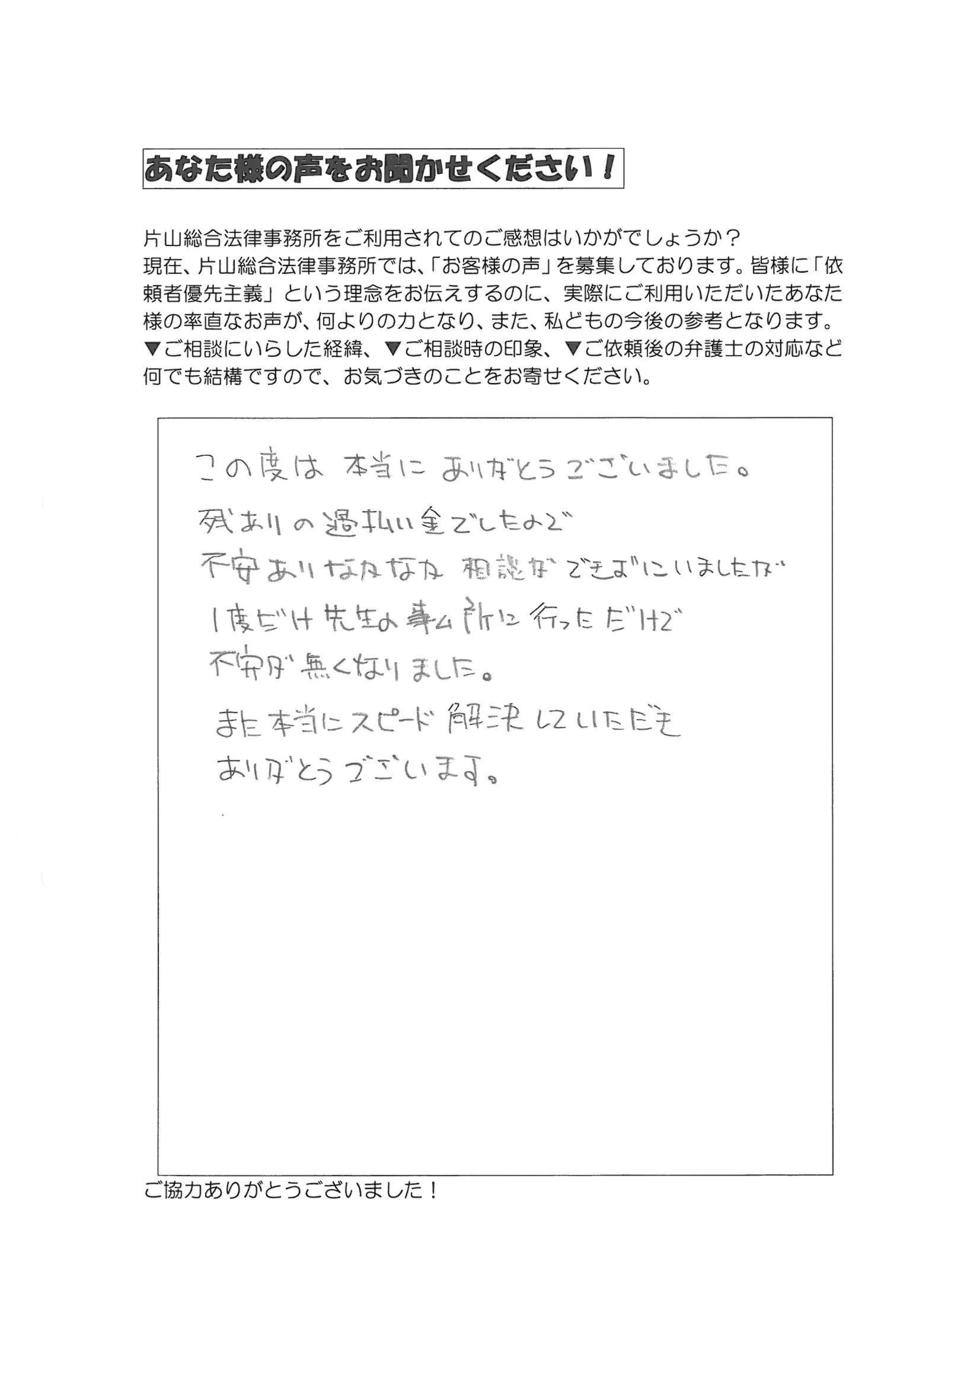 あなた様の声をお聞かせください！
片山総合法律事務所をご利用されてのご感想はいかがでしょうか？
現在、片山総合法律事務所では、「お客様の声」を募集しております。皆様に「依
頼者優先主義」という理念をお伝えするのに、実際にご利用いただいたあなた
様の率直なお声が、何よりの力となり、また、私どもの今後の参考となります。
▼ご相談にいらした経緯、▼ご相談時の印象、▼ご依頼後の弁護士の対応など
何でも結構ですので、お気づきのことをお寄せください。
この度は 本当に ありがとうございました。
残ありの過払い金でしたので
不安ありなかなか 相談ができずにいましたが
1度だけ先生の事ム所に行っただけで
不安が無くなりました。
また本当にスピード解決していただき
ありがとうございます。
ご協力ありがとうございました！